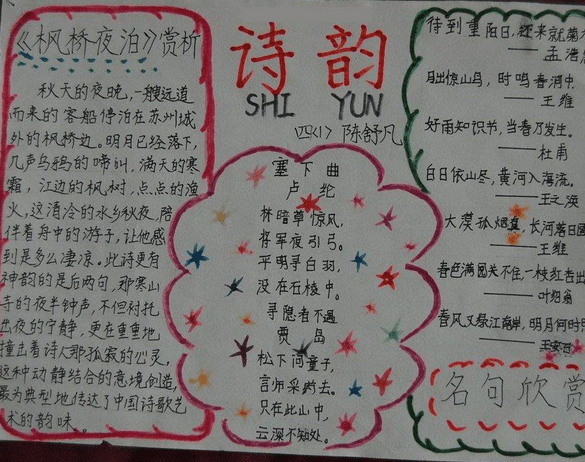 《枫桥夜泊》赏析
秋天的夜晚,一艘远道
而来的客船停泊在苏州城
外的枫桥边。明月已经落下,
几声乌鸦的啼叫,满天的寒
霜,江边的枫树,点点的渔
火,这清冷的水乡秋夜,陪
伴着舟中的游子,让他感
到是多么凄凉。此诗更有
神韵的是后两句,那寒山
寺的夜半钟声,不但衬托
出夜的宁静,更在重重地
撞击着诗人那孤寂的心灵,
这种动静结合的意境创造,
最为典型地传达了中国诗歌艺
术的韵味。
诗韵
SHI YUN
四(1) 陈舒凡
塞下曲
卢纶
林暗草惊风,
将军夜引弓。
平明寻白羽,
没在石棱中。
寻隐者不遇
贾岛
松下问童子,
言师采药去。
只在此山中,
云深不知处。
待到重阳日,还来就菊
——孟浩
月出惊山鸟,时鸣春涧中。
——王维
好雨知时节,当春乃发生。
——杜甫
白日依山尽,黄河入海流。
——王之涣
大漠孤烟直,长河落日圆
——王维
春色满园关不住,一枝红杏出
——叶绍翁
春风又绿江南岸,明月何时
——王安石
名句欣赏